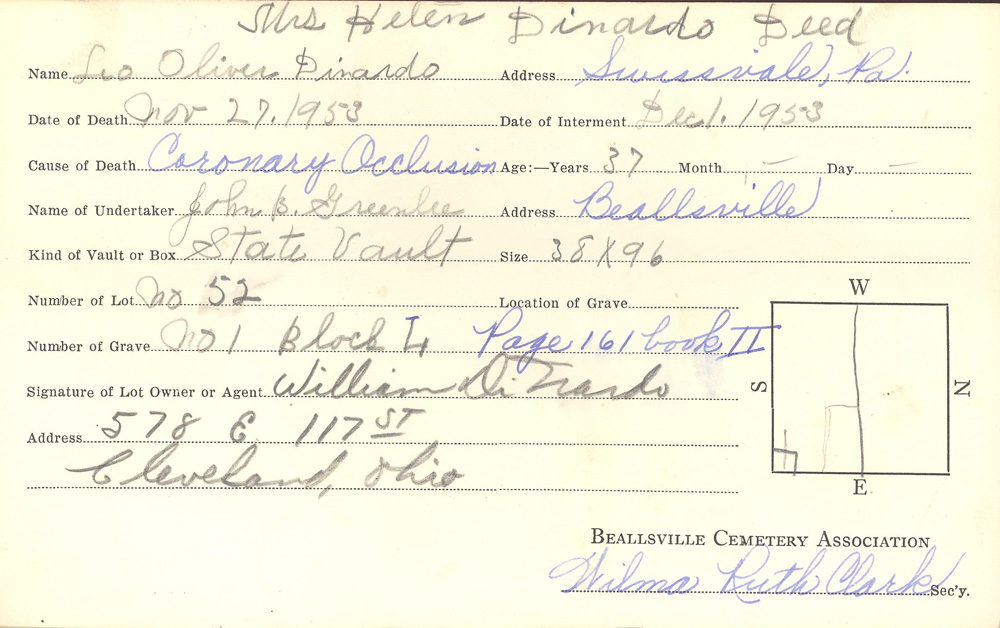 Mrs Helen Dinardo Deed
Name Leo Oliver Dinardo Address Swissvale, Pa.
Date of Death Nov 27. 1953 Date of Interment Dec 1. 1953
Cause of Death Coronary Occlusion Age:—Years 37 Month – Day –
Name of Undertaker John B. Greenlee Address Beallsville
Kind of Vault or Box State Vault Size 38X96
Number of Lot No 52 Location of Grave
Number of Grave No 1 Block 4 Page 161 book II
Signature of Lot Owner or Agent William DiNardo
Address 578 E. 117 ST
Cleveland, Ohio
W
S
N
E
BEALLSVILLE CEMETERY ASSOCIATION
Wilma Ruth Clark Sec'y.